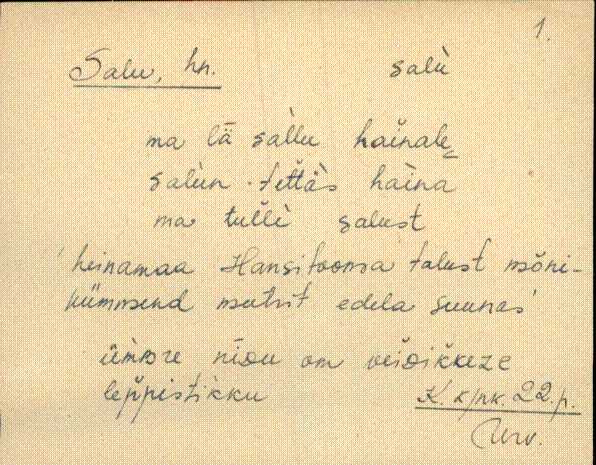 1.
Salu, hn. salù
ma lä sàllu haǐnale
salùn tettäs haìna
ma tullì salust
heinamaa Hansitooma talust mõni-
kümmend meetrit edela suunas
ümbre nīdu om
leppistikku K. 22.p.